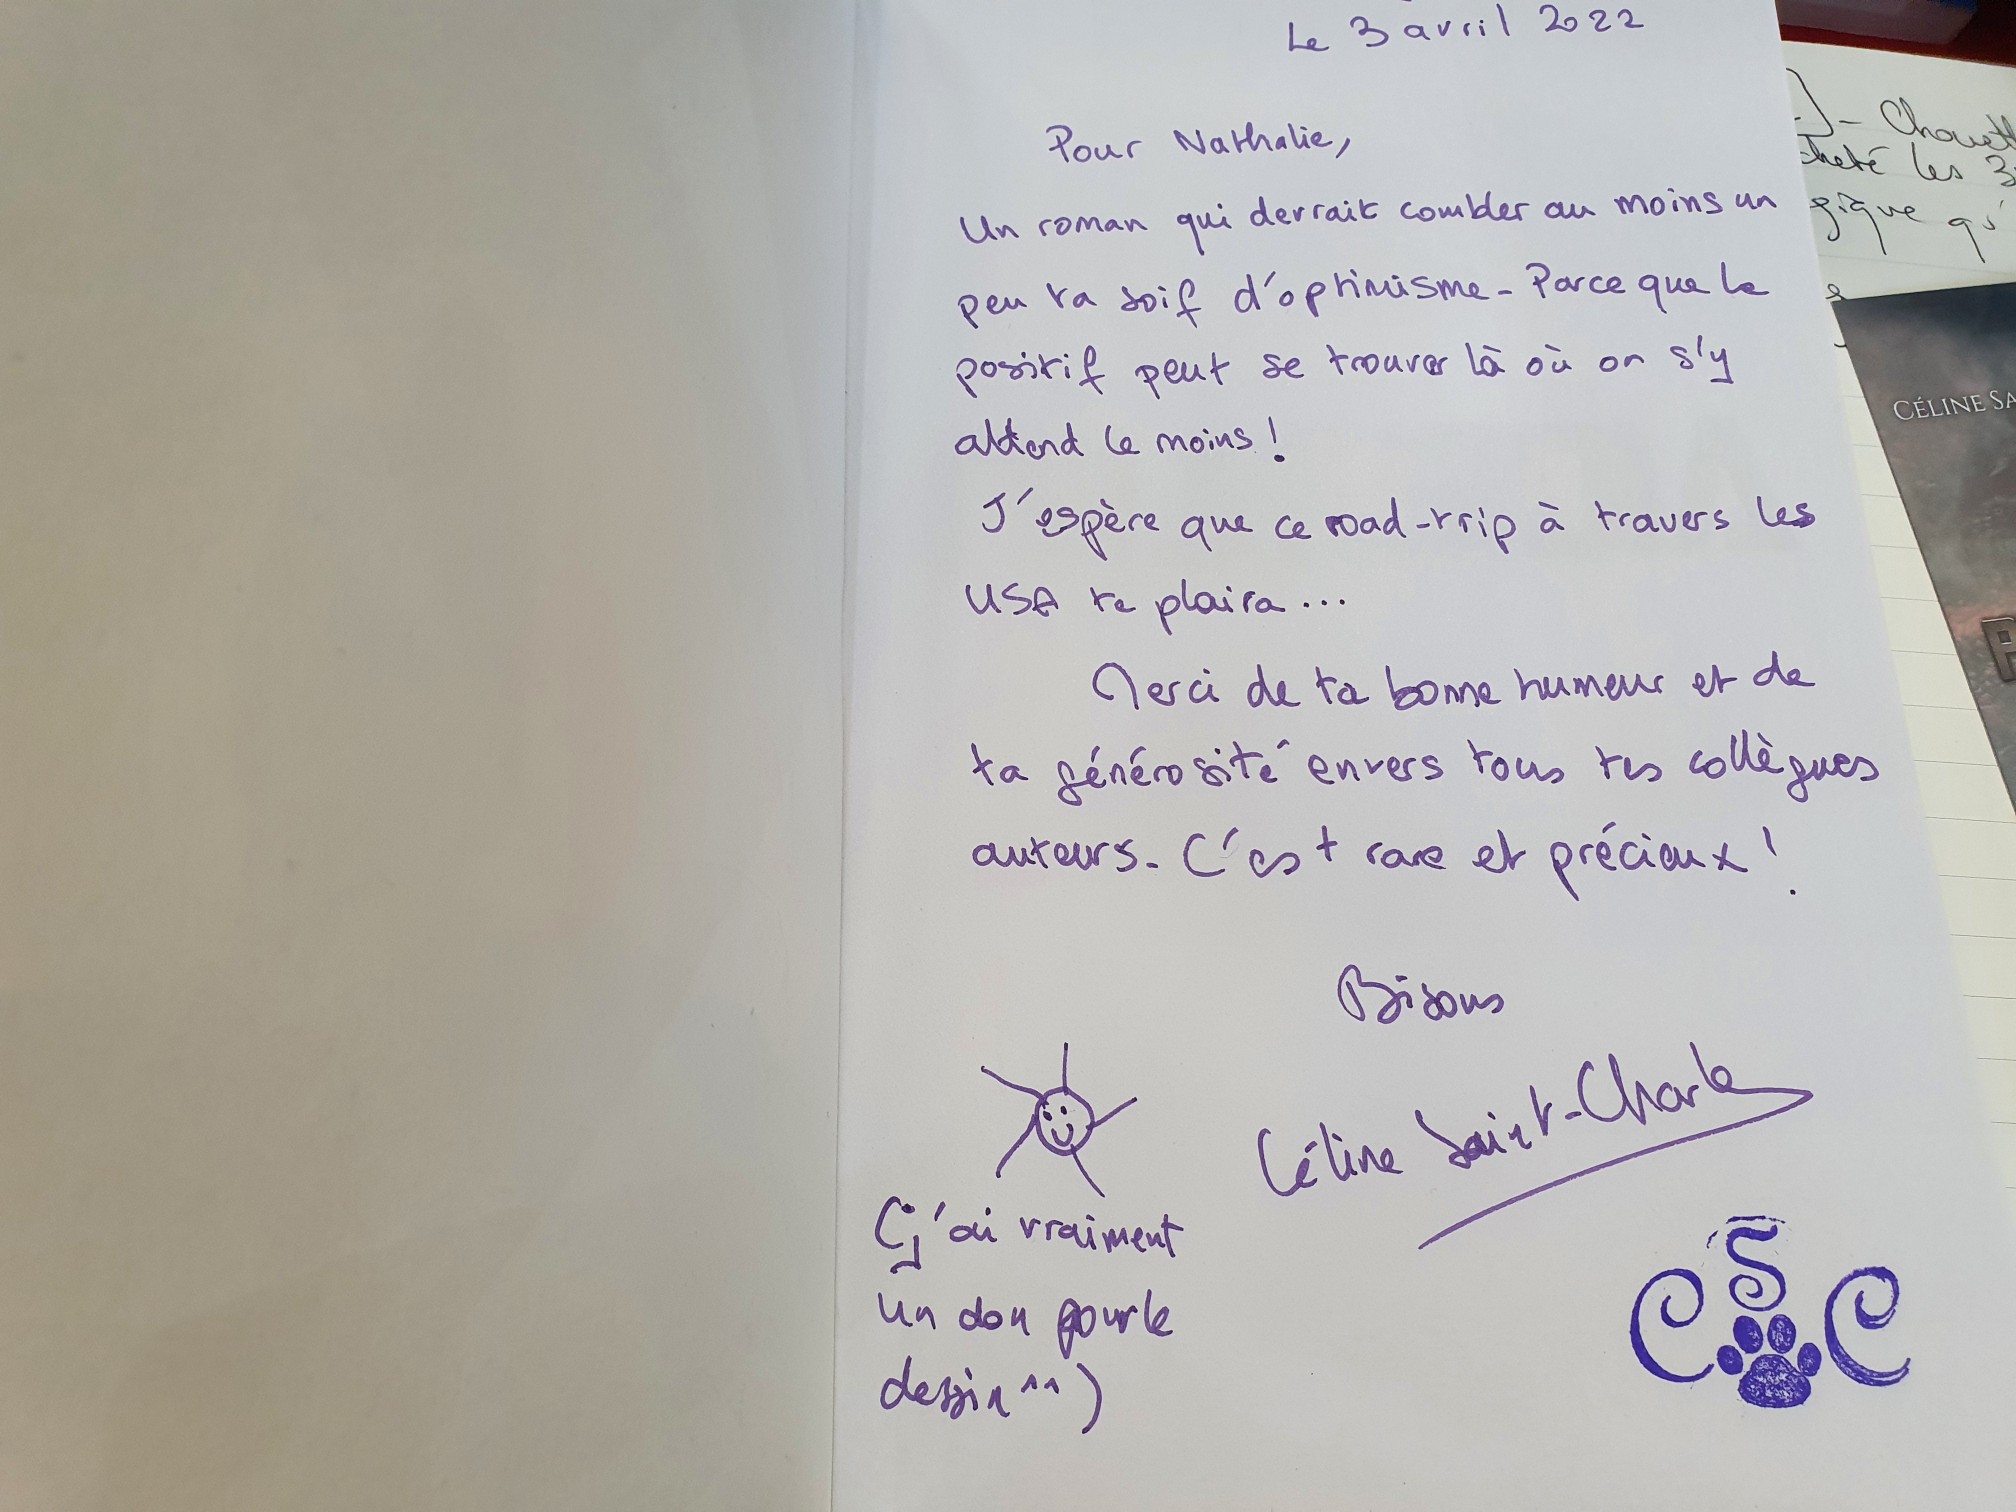 Le 3 avril 2022
Pour Nathalie,
Un roman qui devrait combler au moins un
peu ta soif d'optimisme. Parce que le
positif peut se trouver là où on s'y
attend le moins !
J'espère que ce road-trip à travers les
USA te plaira...
Merci de ta bonne humeur et de
ta générosité envers tous tes collègues
auteurs. C'est rare et précieux !
Bisous
Céline Saint-Charles
(j'ai vraiment
un don pour le
dessin ^^)
CSC
cheté les 3
gique qu'
CÉLINE SA